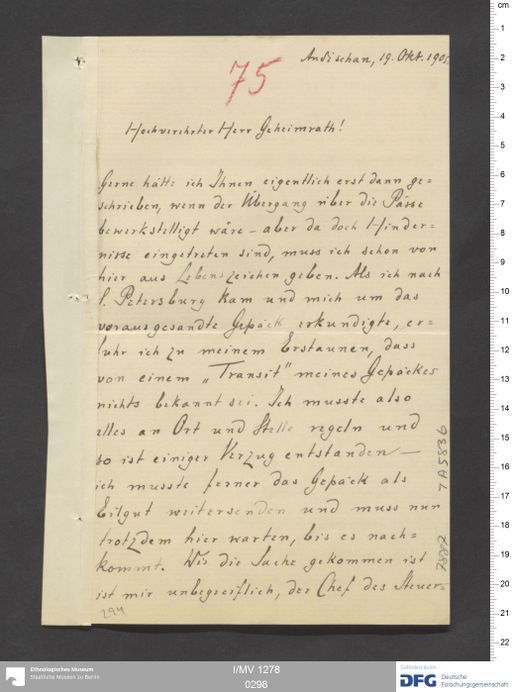 Andischan, 19. Okt. 1905
75
Hochverehrter Herr Geheimrath!
Gerne hätte ich Ihnen eigentlich erst dann ge=
schrieben, wenn der Übergang über die Pässe
bewerkstelligt wäre - aber da doch Hinder=
nisse eingetreten sind, muss ich schon von
hier aus Lebenszeichen geben. Als ich nach
S. Petersburg kam und mich um das
vorausgesandte Gepäck erkundigte, er=
fuhr ich zu meinem Erstaunen, dass
von einem „Transit" meines Gepäckes
nichts bekannt sei. Ich musste also
alles an Ort und Stelle regeln und
so ist einiger Verzug entstanden —
ich musste ferner das Gepäck als
Eilgut weitersenden und muss nun
trotzdem hier warten, bis es nach=
kommt. Wie die Sache gekommen ist
ist mir unbegreiflich, der Chef des Steuer=
294
7 A 5836
Ethnologisches Museum
Staatliche Museen zu Berlin
I/MV 1278
0298
Gefördert durch
DFG Deutsche
Forschungsgemeinschaft
cm
1
2
3
4
5
6
7
8
9
10
11
12
13
14
15
16
17
18
19
20
21
22